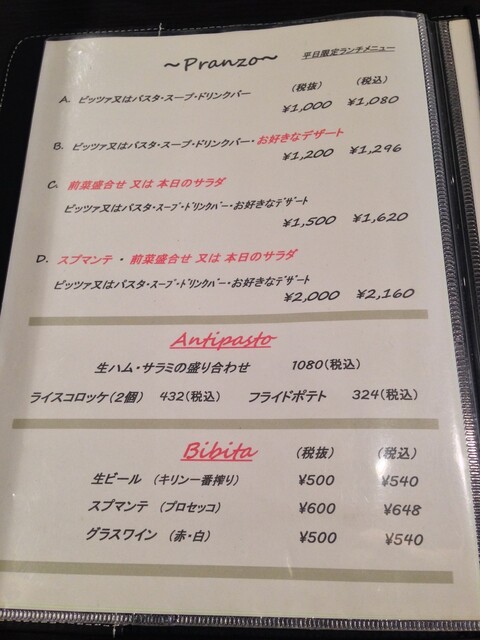 ～Pranzo～ 平日限定ランチメニュー
(税抜) (税込)
A. ピッツァ又はパスタ・スープ・ドリンクバー
¥1,000 ¥1,080
B. ピッツァ又はパスタ・スープ・ドリンクバー・お好きなデザート
¥1,200 ¥1,296
C. 前菜盛合せ 又は 本日のサラダ
ピッツァ又はパスタ・スープ・ドリンクバー・お好きなデザート
¥1,500 ¥1,620
D. スプマンテ ・ 前菜盛合せ 又は 本日のサラダ
ピッツァ又はパスタ・スープ・ドリンクバー・お好きなデザート
¥2,000 ¥2,160
Antipasto
生ハム・サラミの盛り合わせ 1080(税込)
ライスコロッケ(2個) 432(税込) フライドポテト 324(税込)
Bibita (税抜) (税込)
生ビール (キリン一番搾り) ¥500 ¥540
スプマンテ (プロセッコ) ¥600 ¥648
グラスワイン (赤・白) ¥500 ¥540